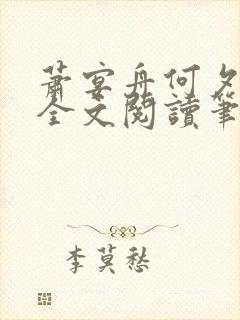 蕭宴舟何夕
全文閱讀筆
李莫愁